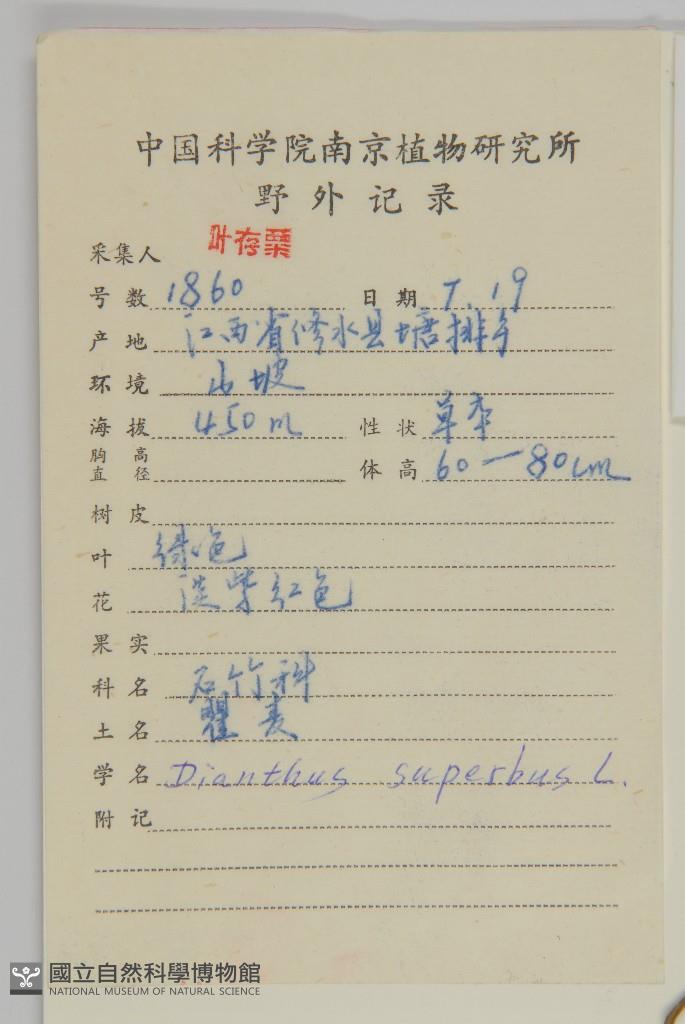 中国科学院南京植物研究所
野外记录
采集人 叶存粟
号数 1860 日期 7.19
产地 江西省修水县塘排
环境 山坡
海拔 450m 性状 草本
胸高直径 体高 60—80cm
树皮
叶 绿色
花 淡紫红色
果实
科名 石竹科
土名 瞿麦
学名 Dianthus superbus L.
附记
國立自然科學博物館
NATIONAL MUSEUM OF NATURAL SCIENCE